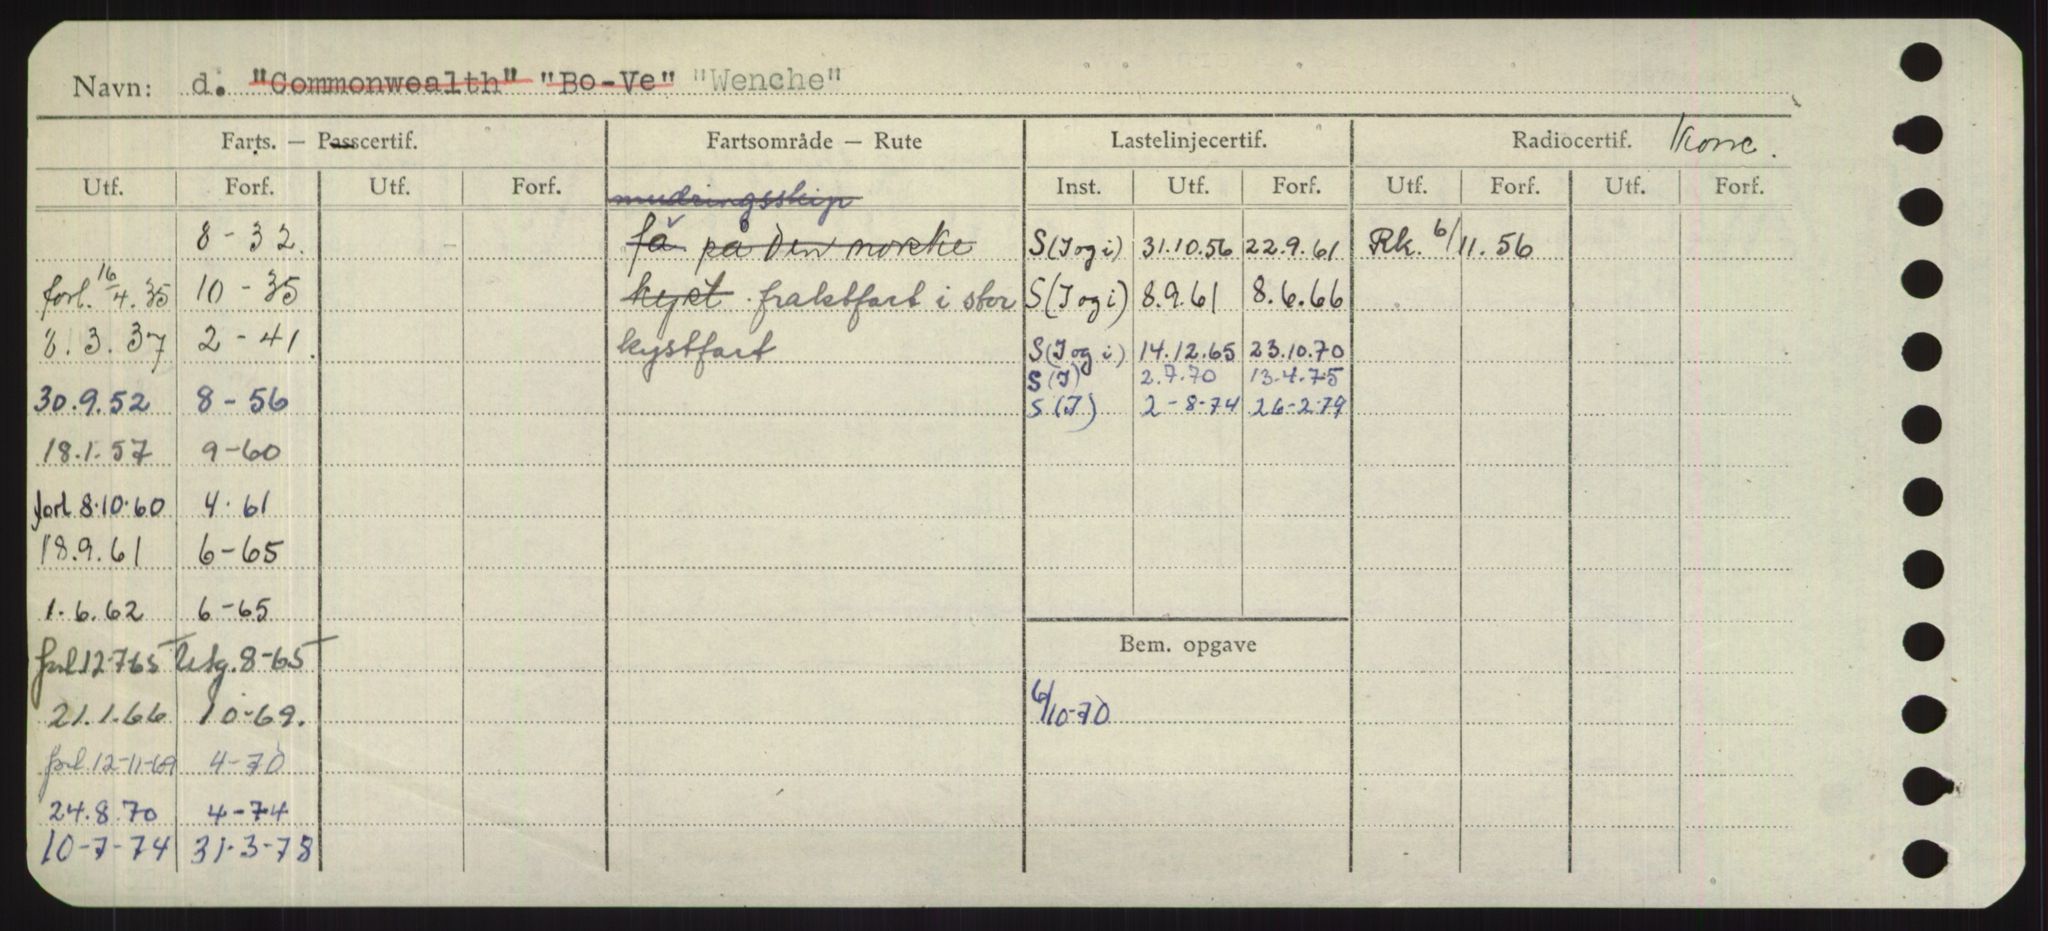 Navn: d. "Commonwealth" "Bo-Ve" "Wenche"
Farts. — Passcertif. Fartsområde — Rute Lastelinjecertif. Radiocertif. Konc.
Utf. Forf. Utf. Forf. mudringsskip Inst. Utf. Forf. Utf. Forf. Utf. Forf.
8-32. få på den norske S(I og i) 31.10.56 22.9.61 Rk. 6/11.56
forl. 16/4.35 10-35 kyst. fraktfart i stor S(I og i) 8.9.61 8.6.66
8.3.37 2-41. kystfart S(I og i) 14.12.65 23.10.70
S(I) 2.7.70 13-4.75
30.9.52 8-56 S(I) 2-8-74 26-2-79
18.1.57 9-60
forl 8.10.60 4.61
18.9.61 6-65
1.6.62 6-65
forl 12-7-65 Utg. 8-65 Bem. opgave
21.1.66 10-69. 6/10-70
forl. 12-11-69 4-70
24.8.70 4-74
10-7-74 31-3-78